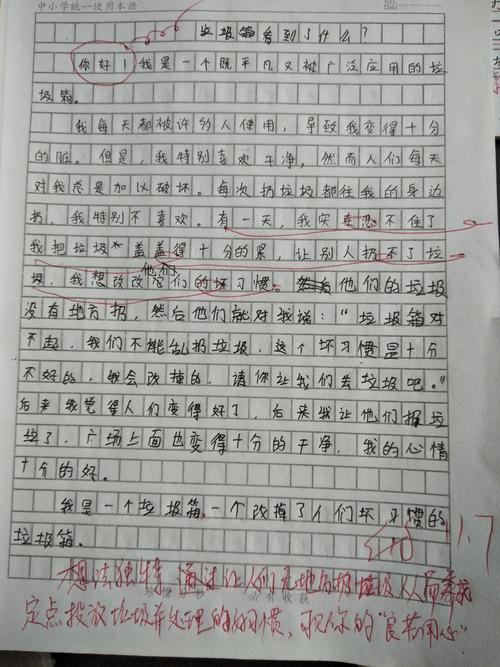 中小学统一使用本册
NO.
Date.
垃圾箱看到了什么?
你好!我是一个既平凡又被广泛应用的垃
圾箱。
我每天都被许多人使用,导致我变得十分
的脏。但是,我特别喜欢干净,然而人们每天
对我总是加以破坏。每次扔垃圾都往我的身边
扔,我特别不喜欢。有一天,我实在忍不住了
我把垃圾 盖盖得十分的累,让别人扔不了垃
圾,我想改改它们的坏习惯。然后他们的垃圾
他们
没有地方扔,然后他们就对我说:“垃圾箱对
不起,我们不能乱扔垃圾,这个坏习惯是十分
不好的,我会改掉的,请你让我们丢垃圾吧。”
后来我觉得人们变得好了,后来我让他们扔垃
圾了,广场上面也变得十分的干净,我的心情
十分的好。
我是一个垃圾箱,一个改掉了人们坏习惯的
垃圾箱。
1.7
想法独特,通过让人们无地扔垃圾从而养成
定点投放垃圾并处理的好习惯,可见你的“良苦用心”